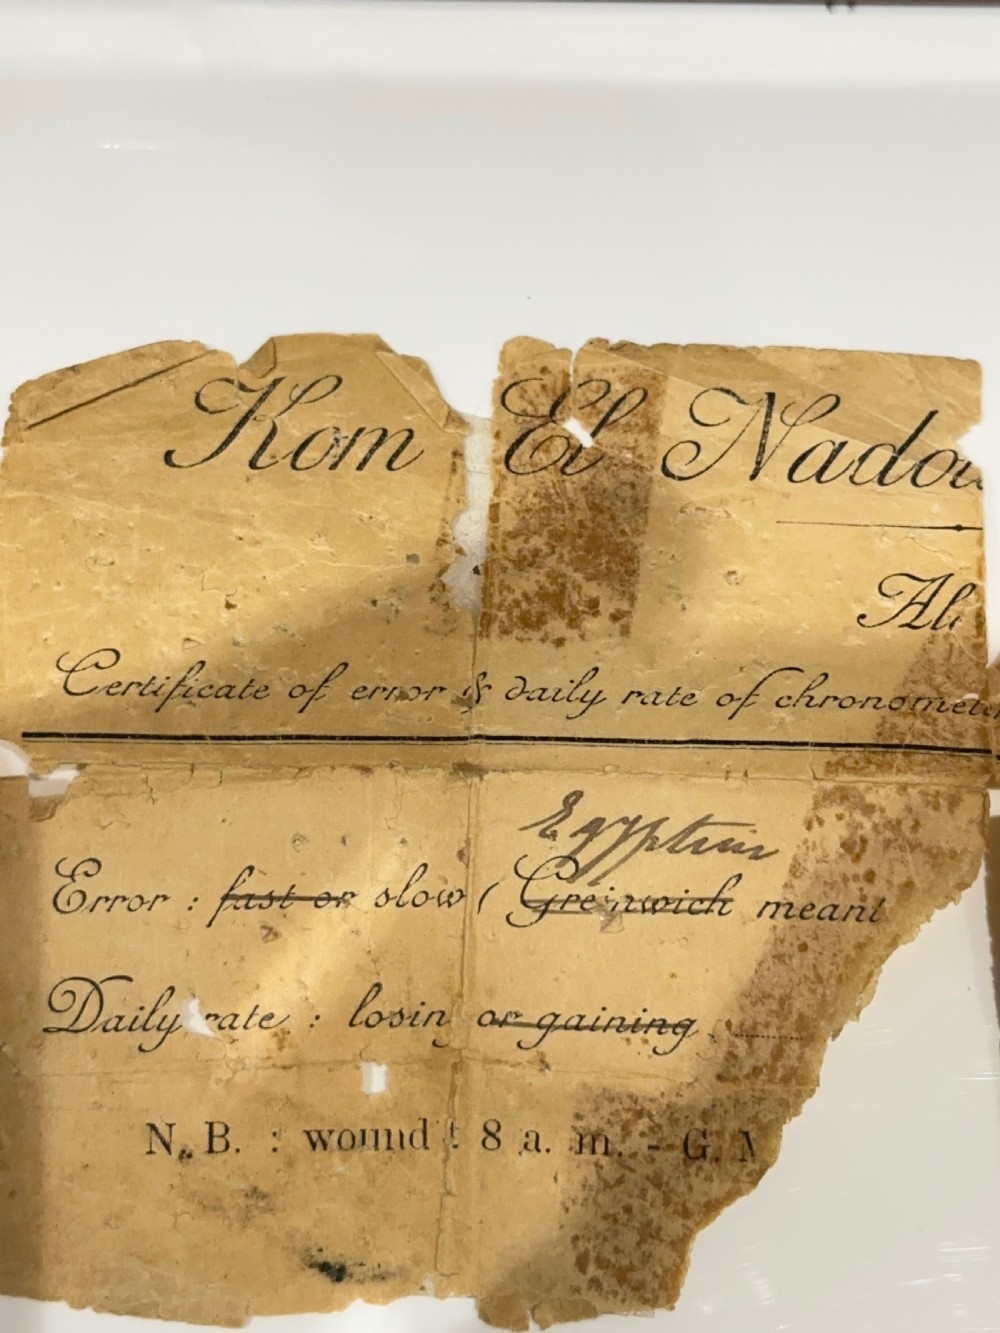 Kom El Nadou
Al
Certificate of error & daily rate of chronomete
Egyptian
Error : fast or slow ( Greenwich meant
Daily rate : losin or gaining
N. B. : wound 8 a. m. - G. M